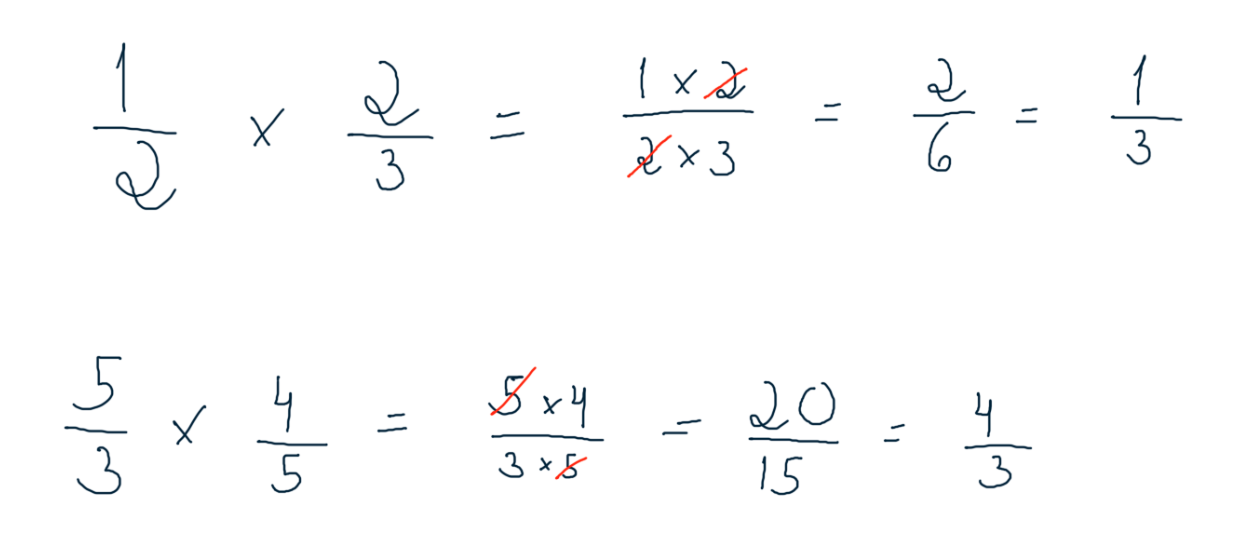 1/2 × 2/3 = 1 × 2/2 × 3 = 2/6 = 1/3
5/3 × 4/5 = 5 × 4/3 × 5 = 20/15 = 4/3